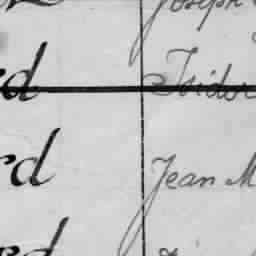 Joseph
d Isidor
rd Jean M
rd